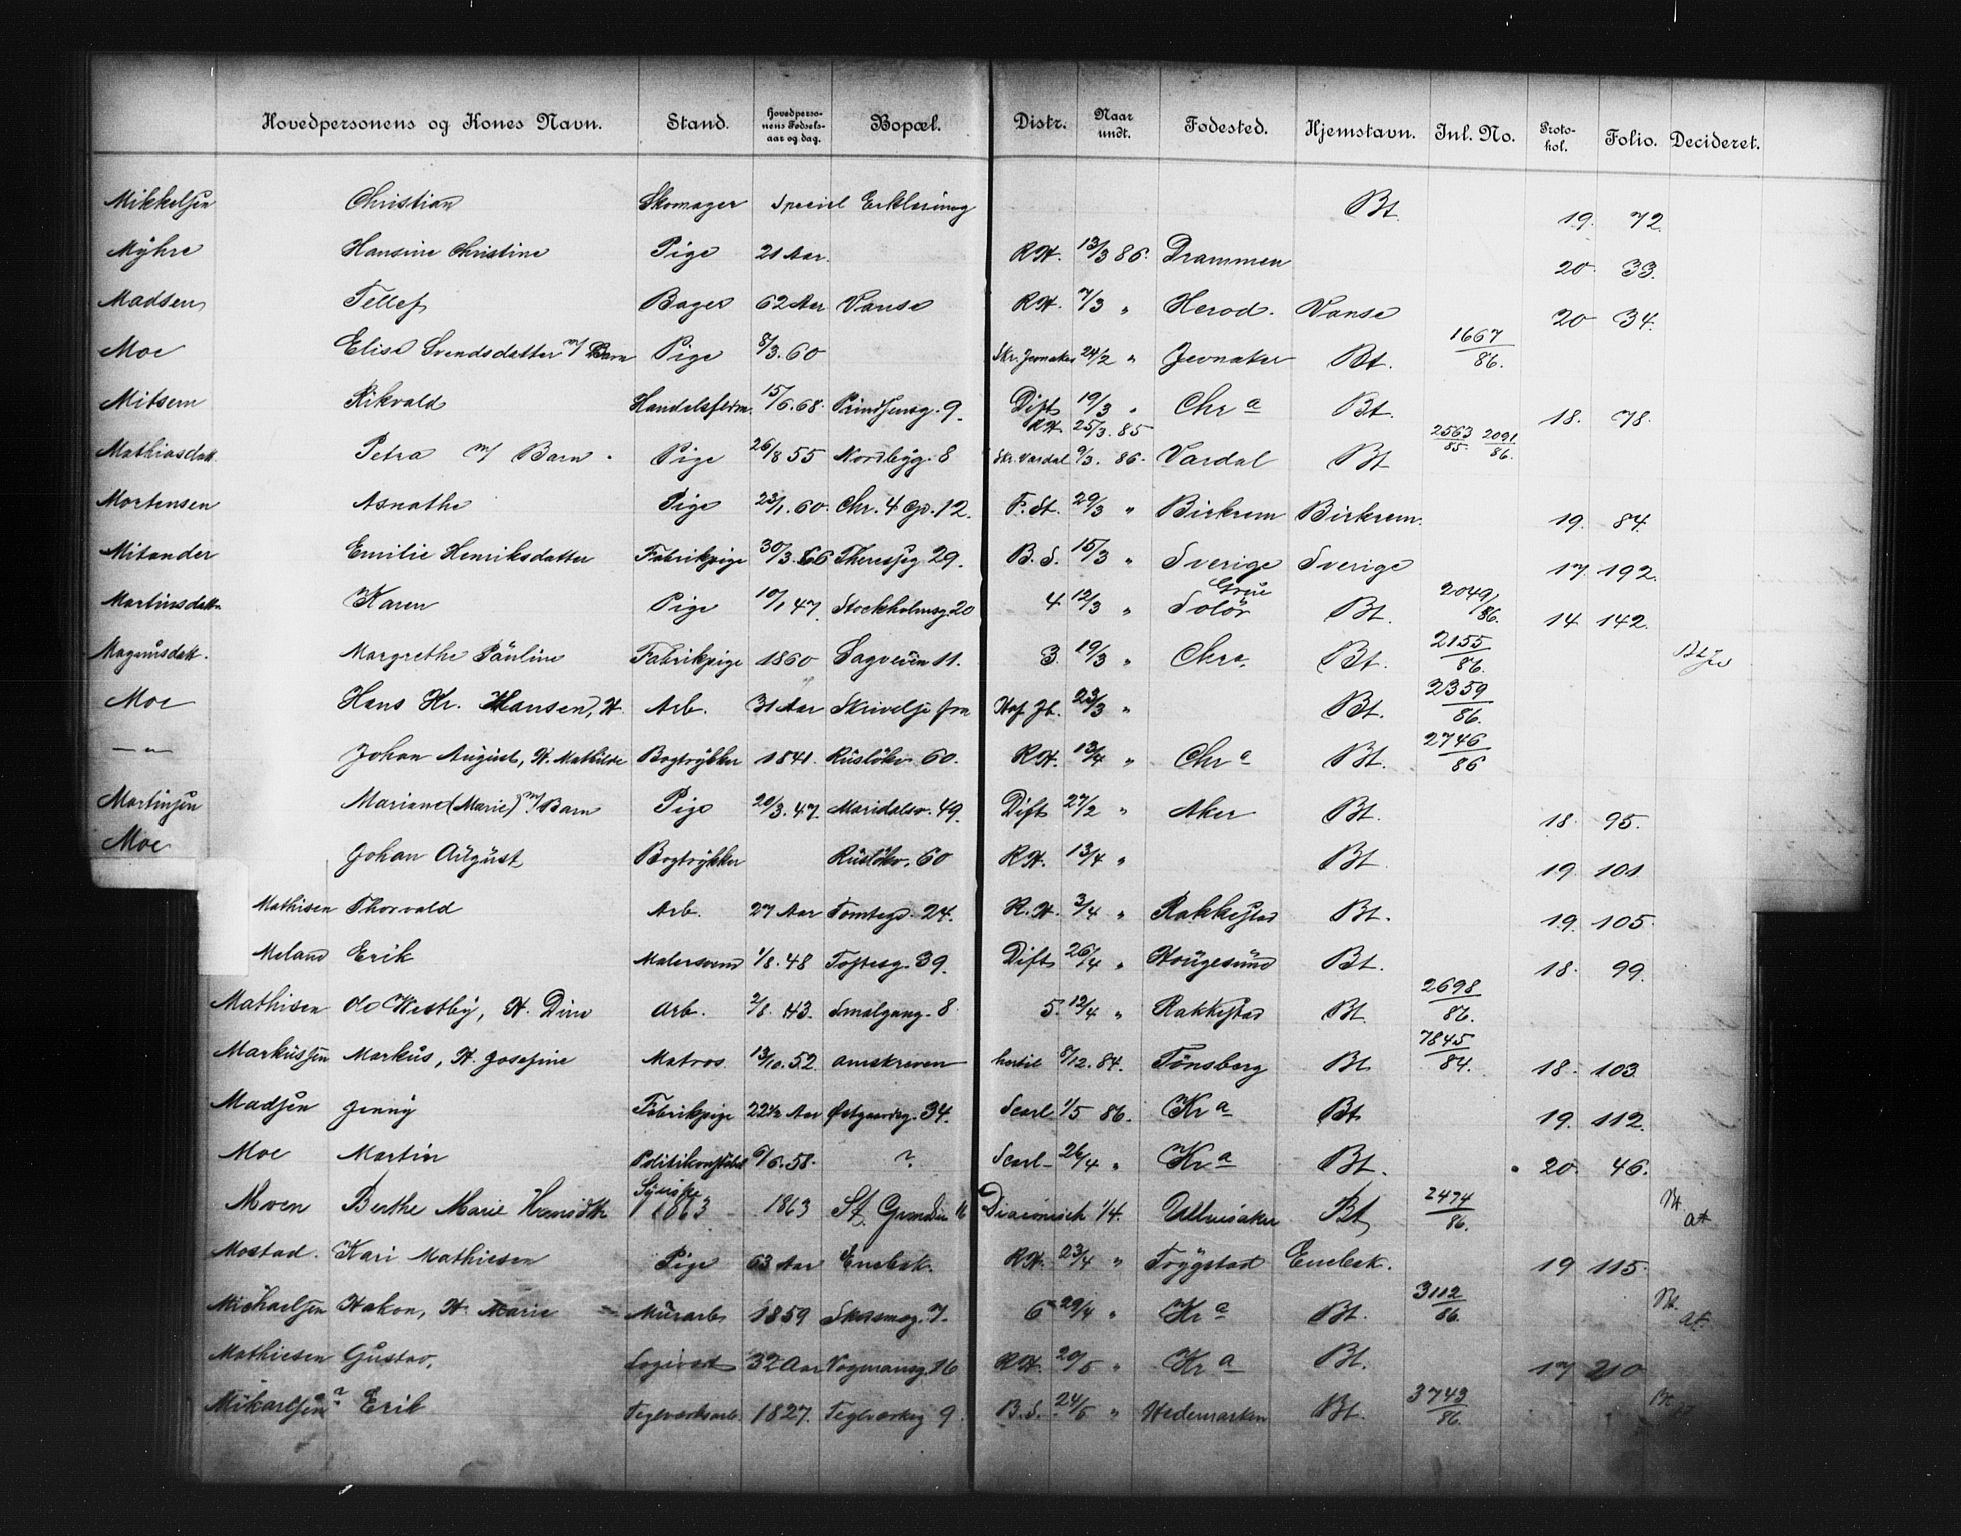 Hovedpersonens og Kones Navn. Stand. Hovedpersonens Fødselsaar og dag. Bopæl. Distr. Naar undt. Fødested. Hjemstavn. Inl. No. Protokol. Folio. Decideret.
Mikkelsen Christian Skomager Speciel Erklæring Bt. 19. 72.
Myhre Hansine Christine Pige 21 Aar. R.H. 13/3 86. Drammen 20. 33.
Madsen Tellef Bager 62 Aar Vanse R.H. 7/3 " Herod. Vanse 20 34.
Moe Elise Svendsdatter m/ Barn Pige 8/3. 60 Skr. Jevnaker 24/2 " Jevnaker Bt. 1667/86.
Mitsem Rikvald Handelsfuldm. 15/6. 68. Prindsensg. 9. Dift 19/3 " Chra Bt. 18. 78.
Mathiasdatt. Petra m/ Barn. Pige 26/8 55 Nordbyg. 8 R.H. 25/3. 85 Skr. Vardal 9/3. 86. Vardal Bt 2563/85. 2091/86.
Mortensen Asnathe Pige 23/1. 60. Chr. 4 Gd. 12. F. St. 29/3 " Birkrem Birkrem. 19. 84.
Mitander Emilie Henriksdatter Fabrikpige 30/3. 66 Theresesg. 29. B. S. 15/3 " Sverige Sverige 17. 192.
Martinsdattr Karen Pige 10/1 47. Stockholmsg. 20 4 12/3 " Grue Solør Bt. 2049/86. 14 142.
Magnusdatt. Margrethe Pauline Fabrikpige 1860 Sagveien 11. 3. 19/3 " Chra. Bt. 2155/86.
Moe Hans Kr. Hansen, H. Arb. 31 Aar Skrivelse fra 23/3 " Bt. 2359/86.
— " — Johan August, H. Mathilde Bogtrykker 1841. Ruseløkv. 60. R.H. 13/4 " Chra Bt. 2746/86
Martinsen Mariane (Marie) m/ Barn Pige 20/3. 47. Maridalsv. 49. Dift 27/2 " Aker Bt. 18. 95.
Moe Johan August Bogtrykker Ruseløkv. 60 R.H. 13/4 " Bt. 19. 101.
Mathisen Thorvald Arb. 27 Aar Tomtegd. 24. R.H. 3/4 " Rakkestad Bt. 19. 105.
Meland Erik Malersvend 1/8. 48 Toftesg. 39. Dift 26/4 " Hougesund Bt. 18. 99.
Mathisen Ole Westby, H. Dina Arb. 2/8. 43. Smalgang. 8 5. 12/4 " Rakkestad Bt. 2698/86.
Markussen Markus, H. Josefine Matros 13/10. 52. omskreven hertil 8/12. 84. Tönsberg Bt. 7845/84. 18. 103
Madsen Jenny Fabrikpige 22½ Aar Østgaardsg. 34. Scarl 1/5 86. Kra Bt. 19. 112.
Moe Martin Politikonstabel 6/6. 58. ? Scarl 26/4 " Kra Bt. 20. 46.
Moen Berthe Marie Syerske 1863 1863 St. 16 Diaconisseh 1/4. Ullensaker Bt 2474/86. Bt. at
Mostad. Kari Mathiesen Pige 63 Aar Enebak. R.H. 23/4 " Trygstad Enebak. 19 115.
Michaelsen Hakon, H. Marie Murarb 1859 7. 6 29/4 " Kra Bt. 3112/86. Bt. at.
Mathiesen Gustav, Logivert 32 Aar Vognmansg. 16 R.H. 20/5 " Kra Bt. 17 210
Mikaelsen? Erik Teglværksarb. 1827. Teglværksg 9. B.S. 24/5 " Hedemarken Bt. 3743/86. Bt. at